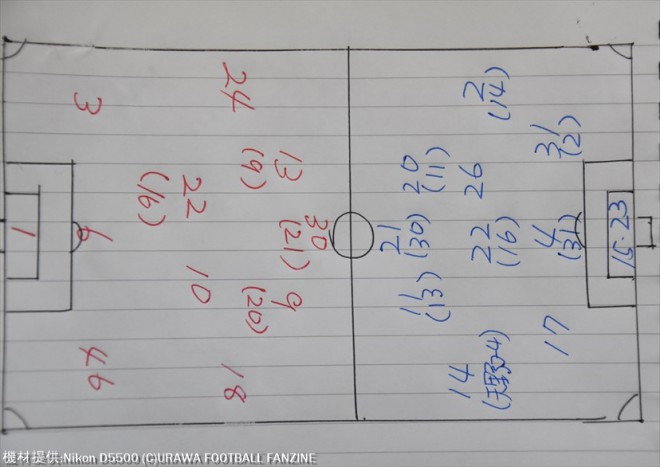 24
3
13
(9)
22
(16)
30
(21)
1
6
10
9
(20)
46
18
2
(14)
31
(2)
20
(11)
26
21
(30)
22
(16)
4
(31)
15・23
11
(13)
17
14
機材提供:Nikon D5500 (C)URAWA FOOTBALL FANZINE